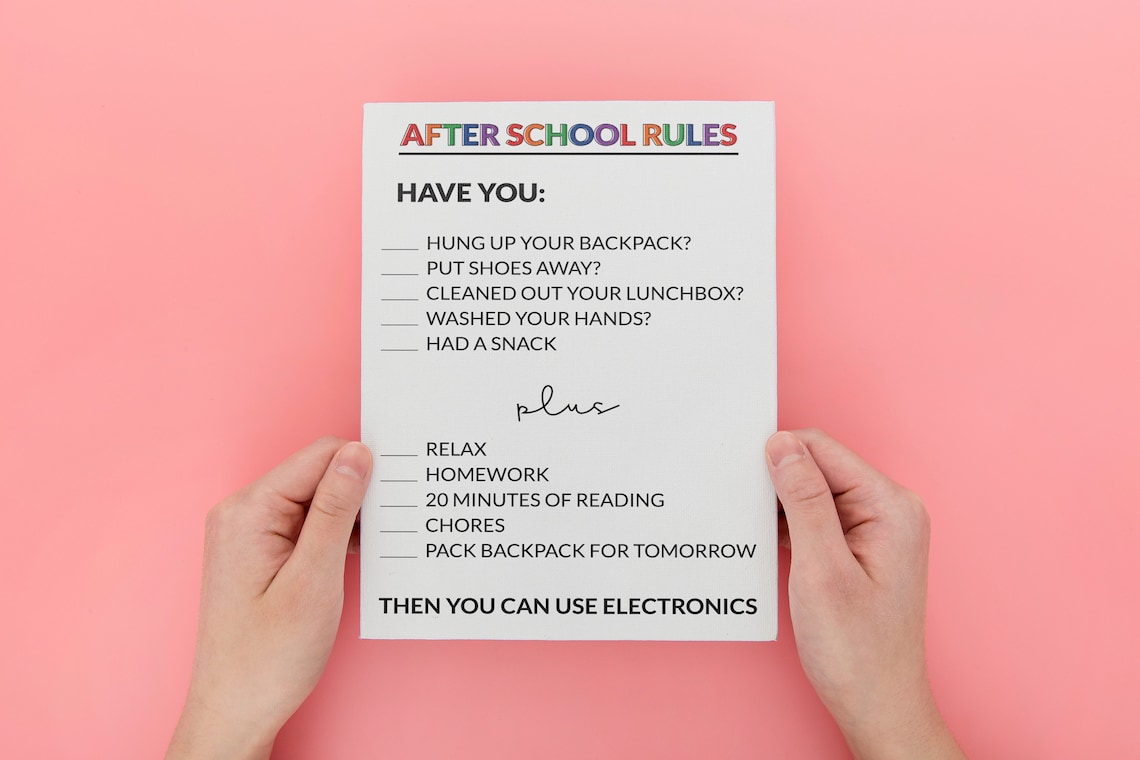 AFTER SCHOOL RULES
HAVE YOU:
____ HUNG UP YOUR BACKPACK?
____ PUT SHOES AWAY?
____ CLEANED OUT YOUR LUNCHBOX?
____ WASHED YOUR HANDS?
____ HAD A SNACK
plus
____ RELAX
____ HOMEWORK
____ 20 MINUTES OF READING
____ CHORES
____ PACK BACKPACK FOR TOMORROW
THEN YOU CAN USE ELECTRONICS